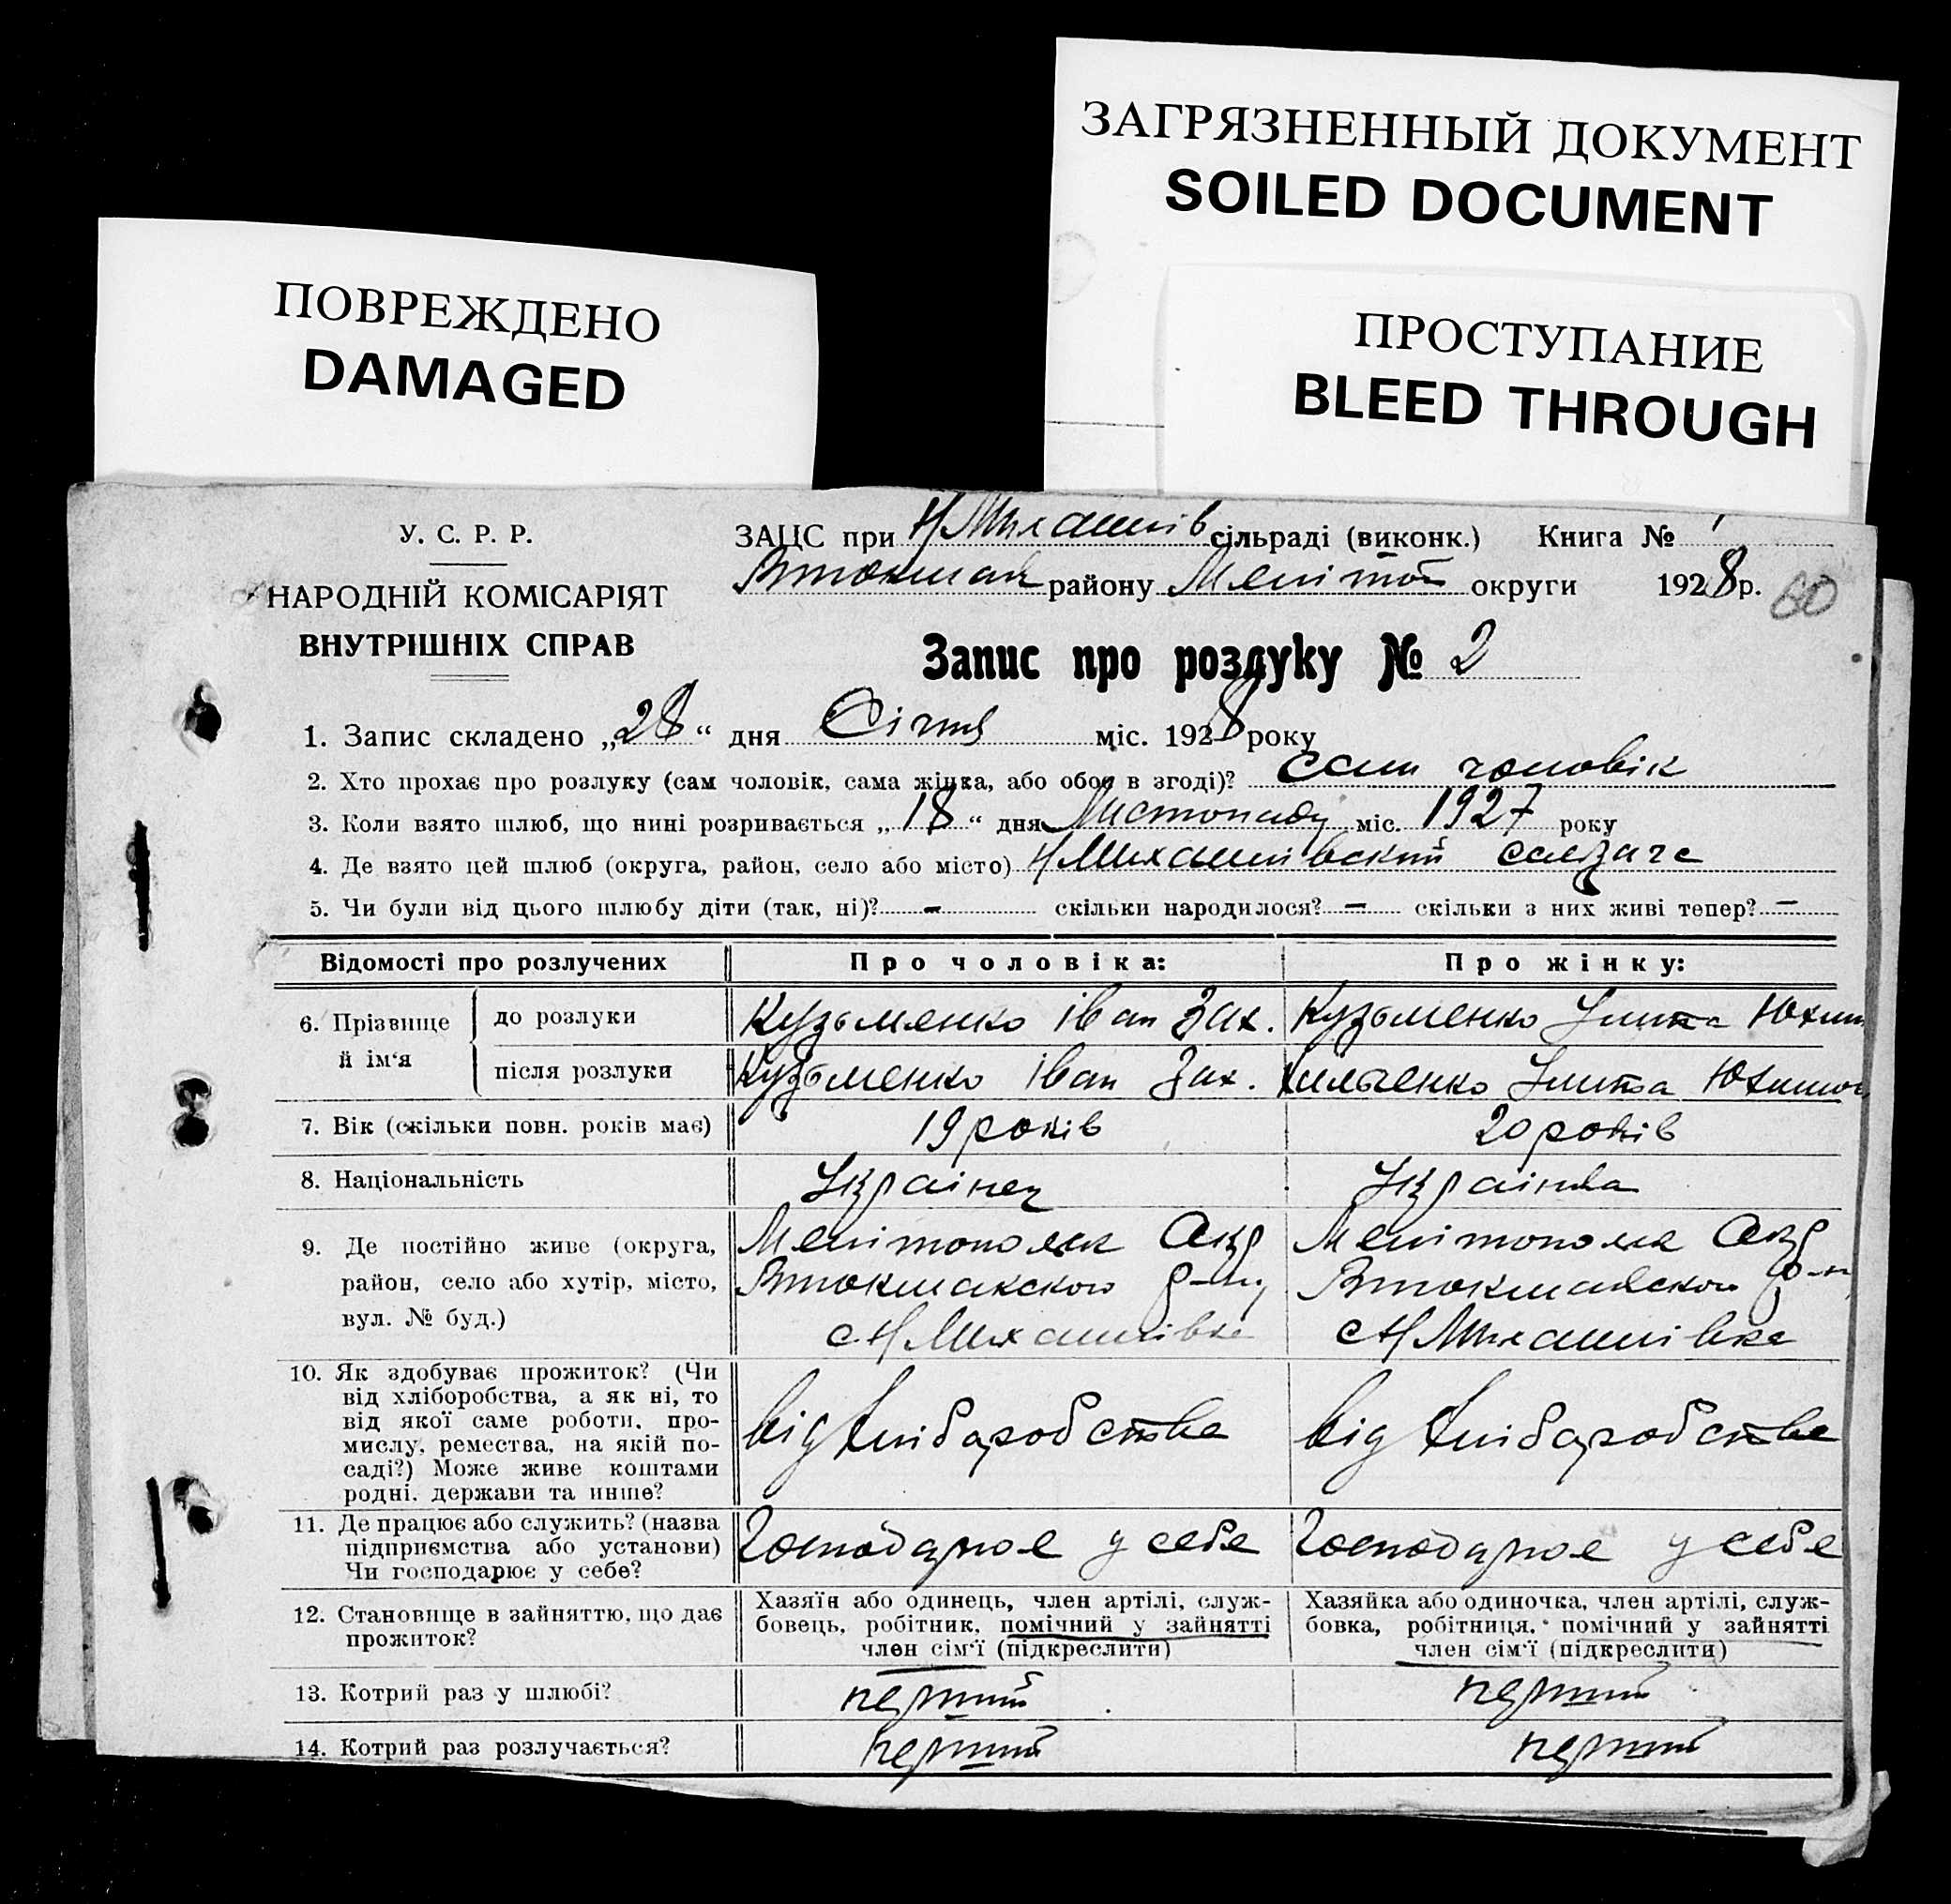 ЗАГРЯЗНЕННЫЙ ДОКУМЕНТ
SOILED DOCUMENT
ПОВРЕЖДЕНО
DAMAGED
ПРОСТУПАНИЕ
BLEED THROUGH
У. С. Р. Р.
НАРОДНІЙ КОМІСАРІЯТ
ВНУТРІШНІХ СПРАВ
ЗАЦС при Н Михайлів сільраді (виконк.) Книга №
Втокмак району Меліто округи 1928 р. 60
Запис про розлуку № 2
1. Запис складено „28“ дня Січня міс. 1928 року
2. Хто прохає про розлуку (сам чоловік, сама жінка, або обоє в згоді)? Сам чоловік
3. Коли взято шлюб, що нині розривається „18“ дня Листопаду міс. 1927 року
4. Де взято цей шлюб (округа, район, село або місто) Н Михайлівский
5. Чи були від цього шлюбу діти (так, ні)? - скільки народилося? - скільки з них живі тепер? -
Відомості про розлучених Про чоловіка: Про жінку:
6. Прізвище й ім‘я
до розлуки Кузьменко Іван Зах. Кузьменко Юхим
після розлуки Кузьменко Іван Зах. Юхимов
7. Вік (скільки повн. років має) 19 років 20 років
8. Національність Українец Українка
9. Де постійно живе (округа, район, село або хутір, місто, вул. № буд.)
Мелітопольск Окр Мелітопольск Окр
Втокмакского р-ну Втокмакского р-н
с Н Михайлівка с Н Михайлівка
10. Як здобуває прожиток? (Чи
від хліборобства, а як ні, то
від якої саме роботи, про-
мислу, ремества, на якій по-
саді?) Може живе коштами
родні, держави та инше?
від хліборобства від хліборобства
11. Де працює або служить? (назва
підприємства або установи)
Чи господарює у себе?
Господарює у себе Господарює у себе
12. Становище в зайняттю, що дає
прожиток?
Хазяїн або одинець, член артілі, служ-
бовець, робітник, помічний у зайнятті
член сім‘ї (підкреслити)
Хазяйка або одиночка, член артілі, служ-
бовка, робітниця, помічний у зайнятті
член сім‘ї (підкреслити)
13. Котрий раз у шлюбі? перший перший
14. Котрий раз розлучається? перший перший